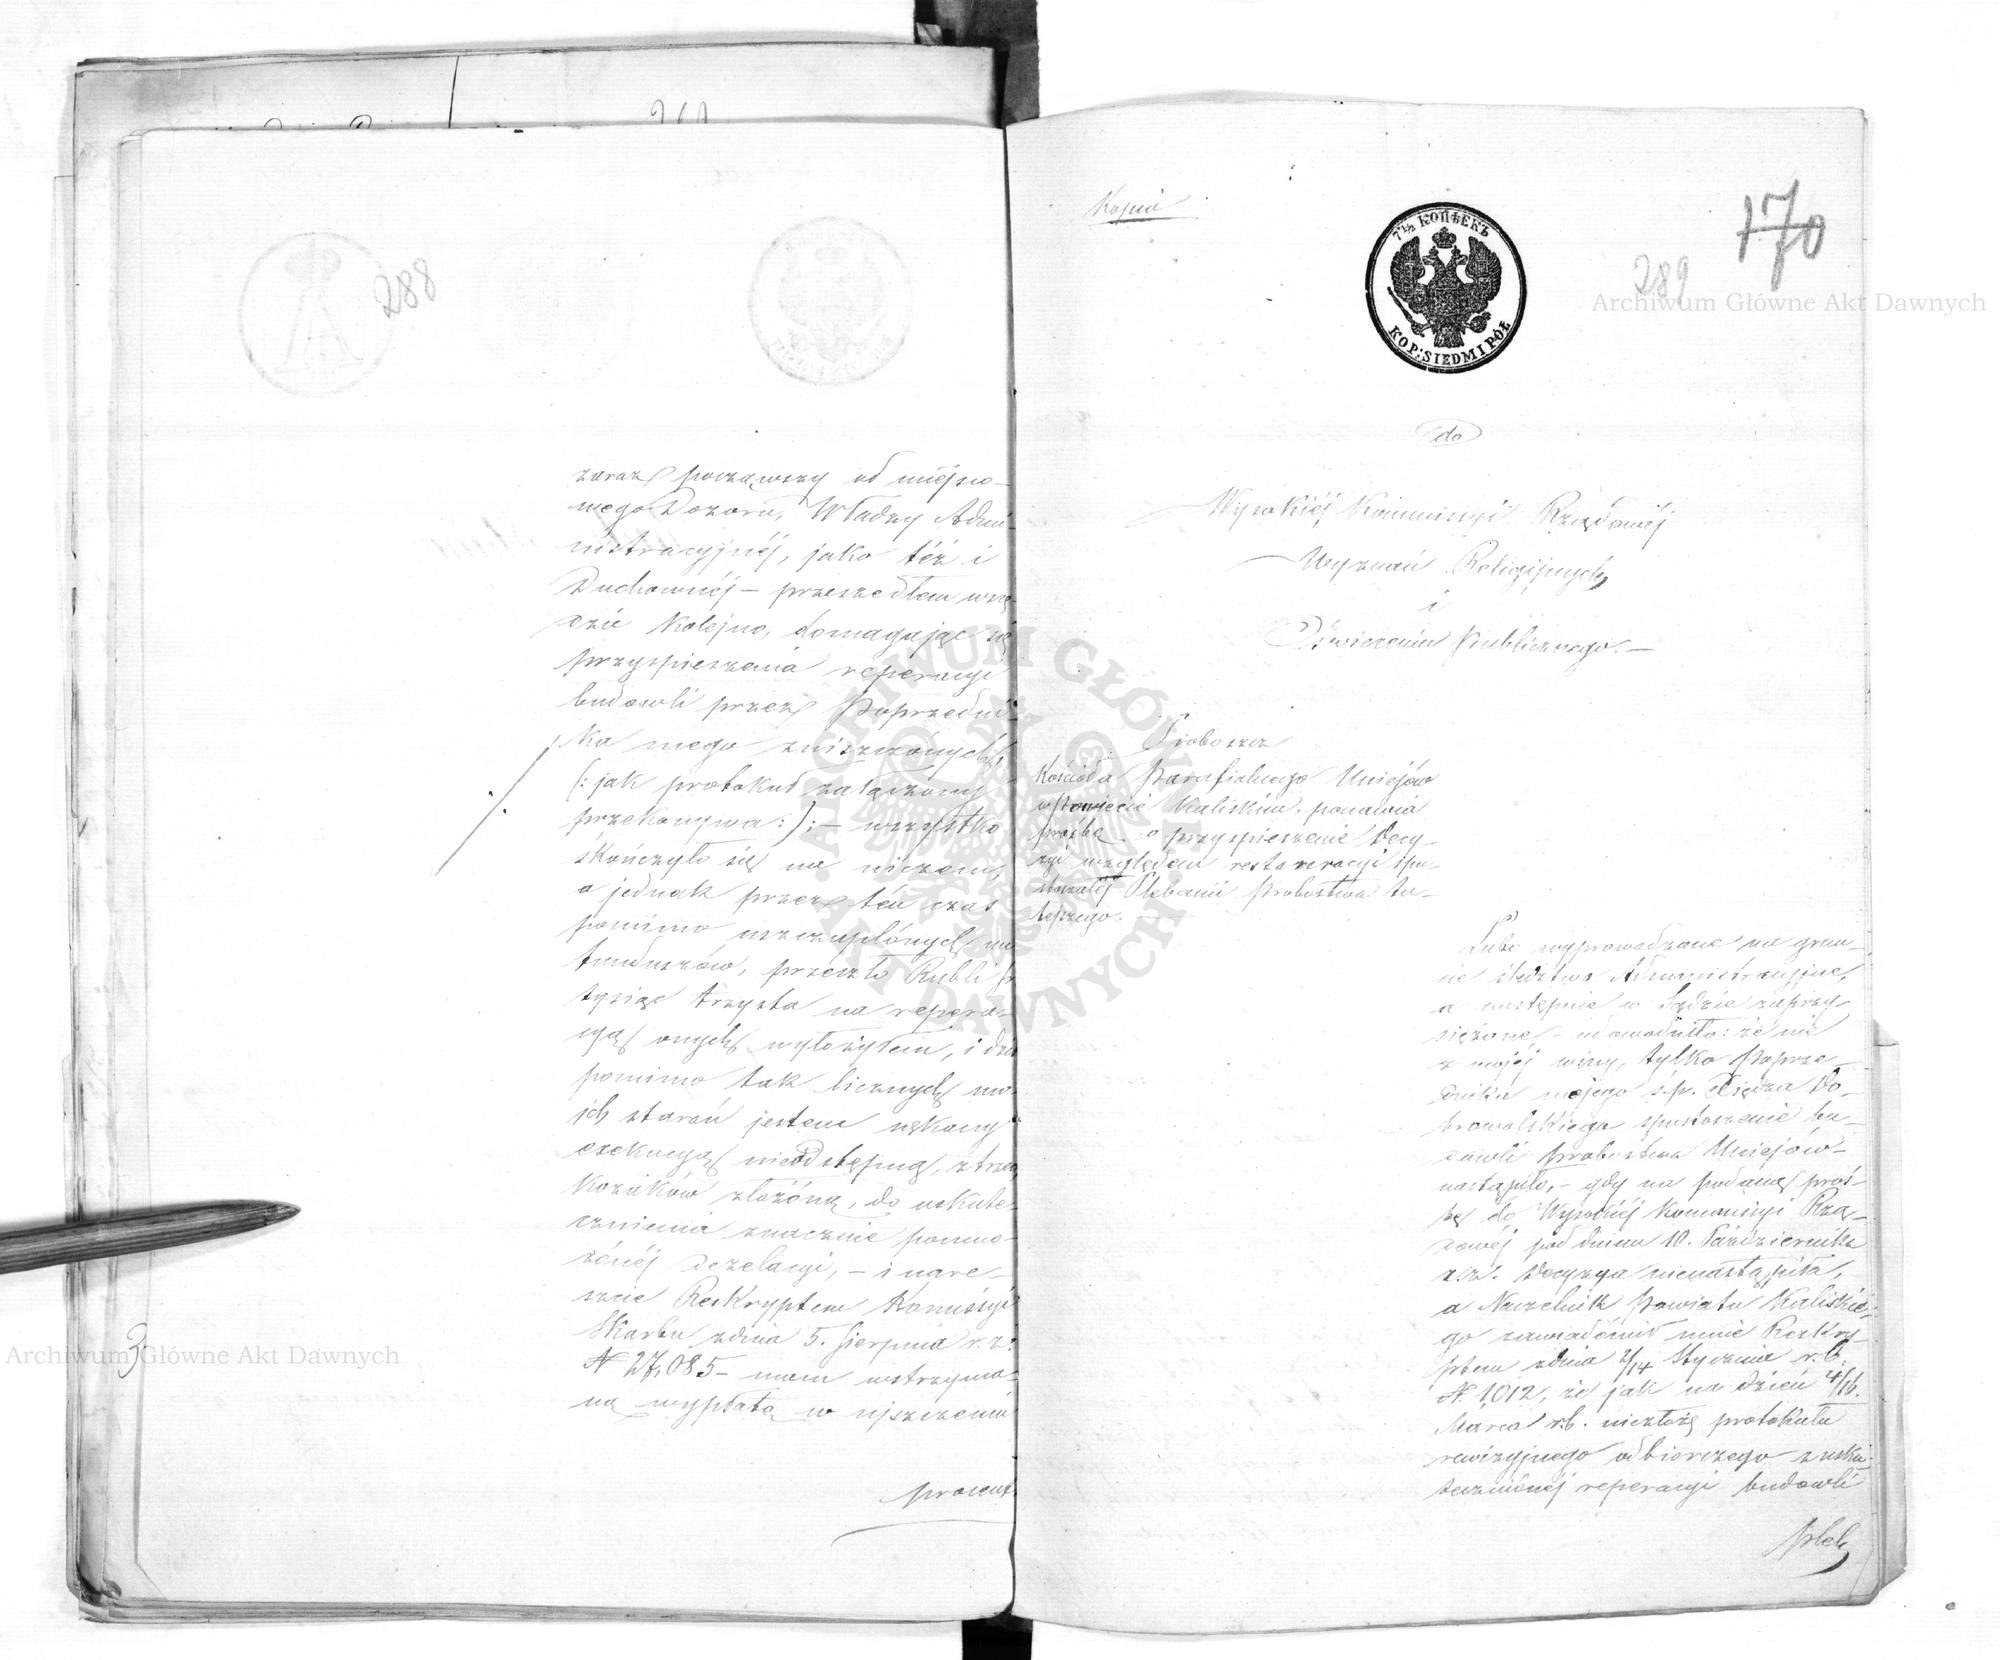 288
zaraz począwszy od miejsco-
wego Dozoru, Władzy Admi-
nistracyjnéj, jako téż i
Duchownéj – przeszedłem wszę-
dzie kolejno, domagając się
przyspieszenia reperacyi
budowli przez Poprzedni-
ka mego zniszczonych,
(: jak protokuł załączony
przekonywa :) ; – wszystko
skończyło się na niczem,
a jednak przez tén czas
pomimo uszczuplónych mi
funduszów, przeszło Rubli sr
tysiąc trzysta na repera-
cyą onych wyłożyłem, i dziś
pomimo tak licznych mo-
ich starań jestem nękany
exekucyą nieodstępną, z trzech
kozaków złożóną, do uskute-
cznienia znacznie pomno-
żónéj dezelacyi, – i nare-
szcie Reskryptem Kommissyi
Skarbu z dnia 5. Sierpnia r. z.
N 27,085 – mam wstrzyma-
ną wypłatę w uiszczeniu
procent
3
Kopia
7½ КОПѢЕКЪ
KOP: SIEDMI PÓŁ
170
289
do
Wysokiéj Kommissyi Rządowéj
Wyznań Religijnych
i
Oświecenia Publicznego. –
Proboszcz
Kościoła Parafialnego Uniejów
w Powiecie Kaliskim ponawia
prośbę o przyspieszenie Decy-
zyi względem restauracyi spu-
stoszałéj Plebanii Probostwa tu-
tejszego.
Lubo wyprowadzone na grun-
cie śledztwo Administracyjne,
a następnie w Sądzie zaprzy-
siężone – udowodniło: że nie
z mojéj winy, tylko Poprze-
dnika mojego ś.p. Xiędza Do-
browolskiego spustoszenie bu-
dowli Probostwa Uniejów
nastąpiło, – gdy na podaną proś-
bę do Wysokiéj Kommissyi Rzą-
dowéj pod dniem 10. Października
r.z. Decyzya nienastąpiła,
a Naczelnik Powiatu Kaliskie-
go zawiadómił mnie Reskry-
ptem z dnia 2/14 Stycznia r.b.
N. 1,012, że jak na dzień 4/16.
Marca r.b. niezłożę protokułu
rewizyjnego odbiorczego z usku-
tecznionéj reperacyi budowli
pleb
Archiwum Główne Akt Dawnych
Archiwum Główne Akt Dawnych
ARCHIWUM GŁÓWNE AKT DAWNYCH